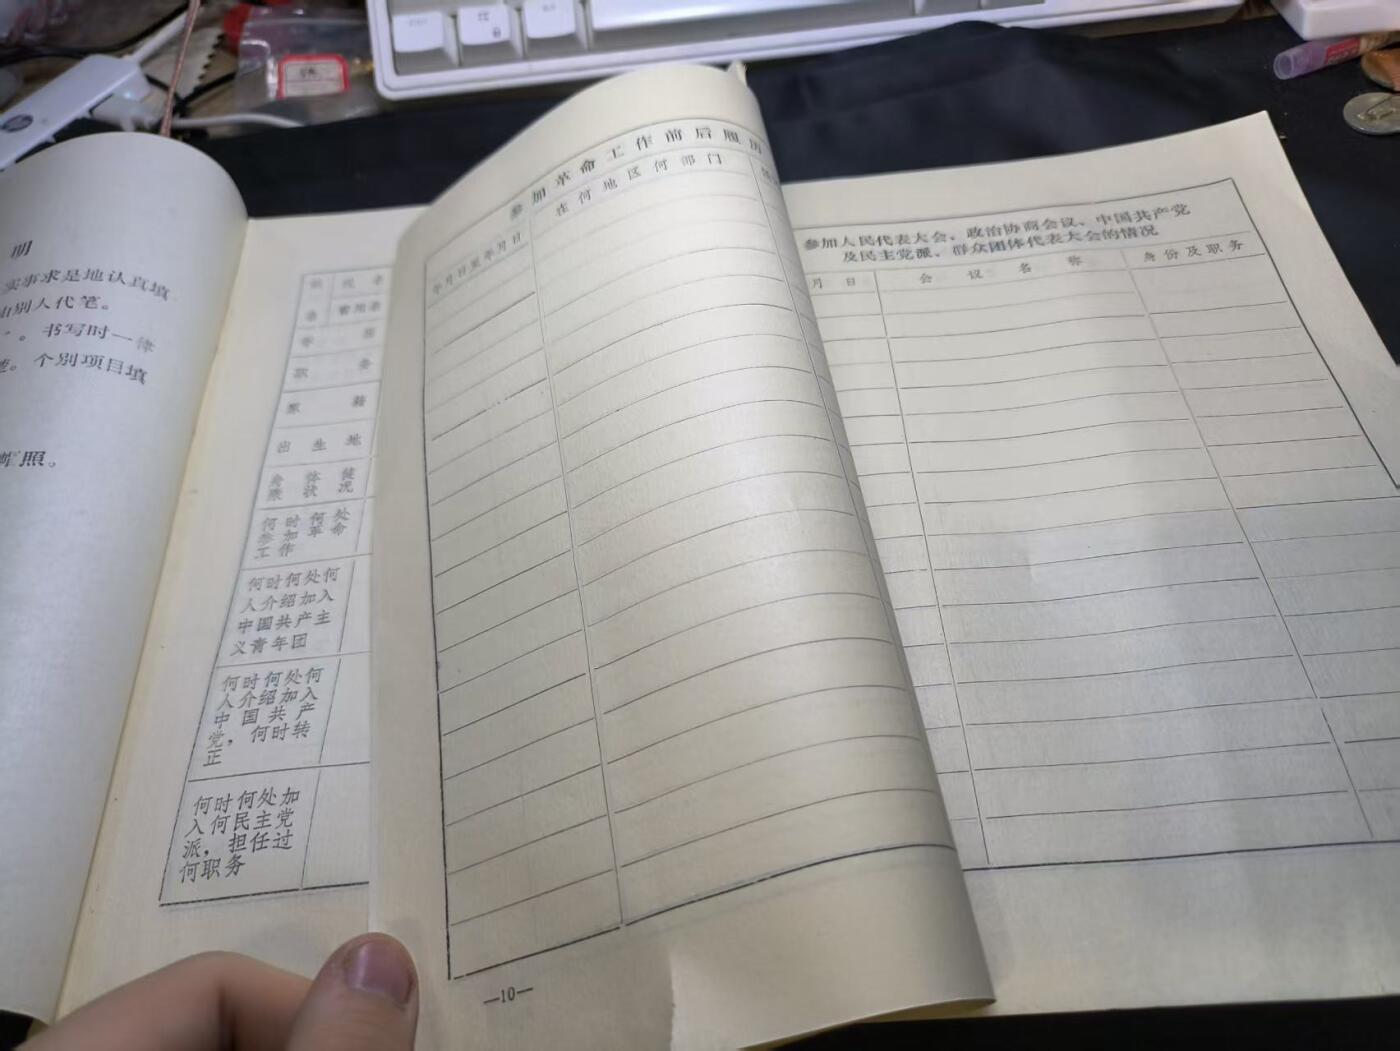 明
实事求是地认真填
由别人代笔。
。书写时一律
。个别项目填
照。
现名
曾用名
职务
原籍
出生地
身体健
康状况
何时何处
参加革命
工作
何时何处何
人介绍加入
中国共产主
义青年团
何时何处何
人介绍加入
中国共产
党，何时转
正
何时何处加
入何民主党
派，担任过
何职务
参加革命工作前后履历
年月日至年月日
在何地区何部门
—10—
参加人民代表大会、政治协商会议、中国共产党
及民主党派、群众团体代表大会的情况
月日
会议名称
身份及职务